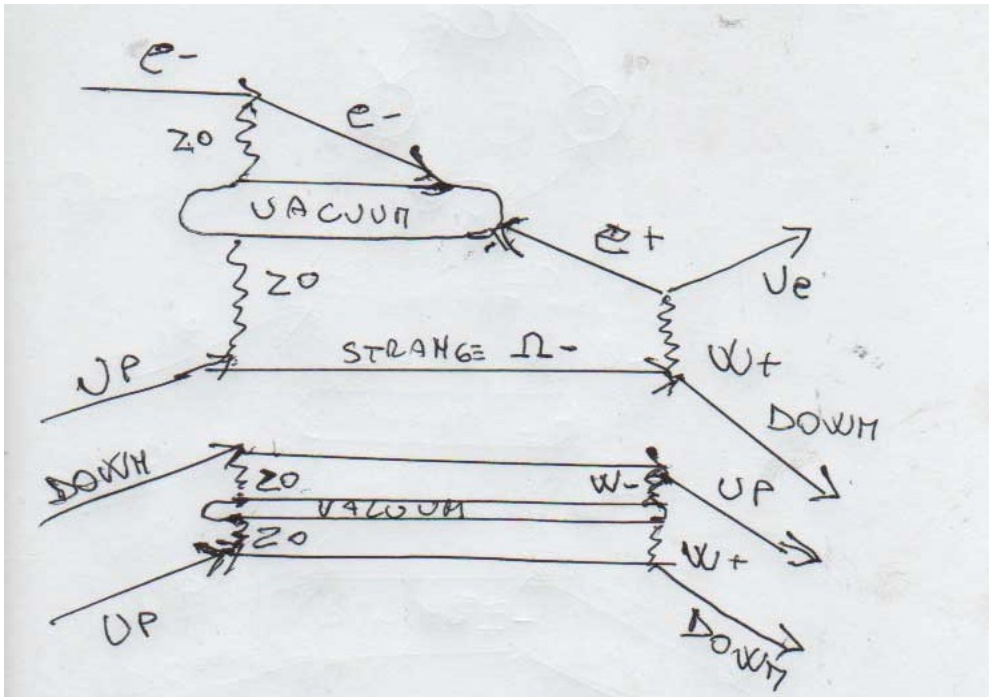 e-
e-
Z0
VACUUM
e+
Ue
Z0
STRANGE Ω-
W+
UP
DOWN
DOWN
Z0
W-
UP
VACUUM
Z0
W+
UP
DOWN